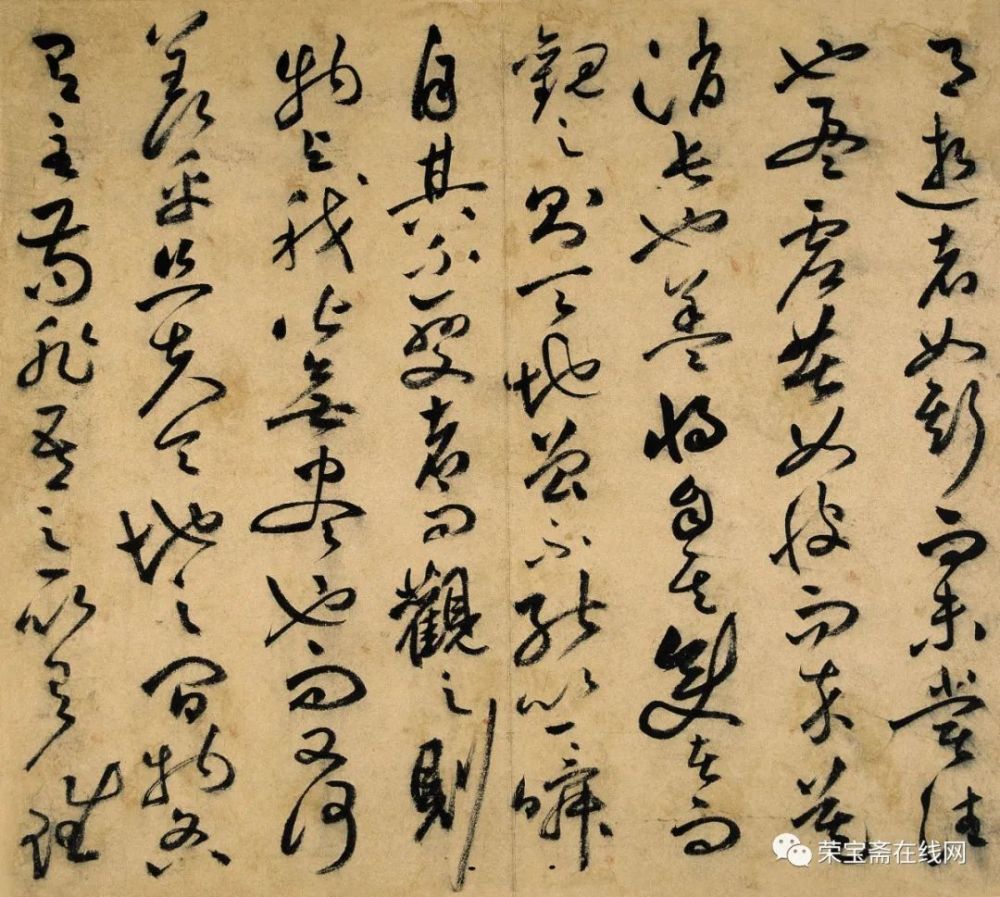 逝者如斯而未嘗往
也盈虛者如彼而卒莫
消長也蓋將自其變者而
觀之則天地曾不能以一瞬
自其不變者而觀之則
物與我皆無盡也而又何
羨乎且夫天地之間物各
有主苟非吾之所有雖
荣宝斋在线网